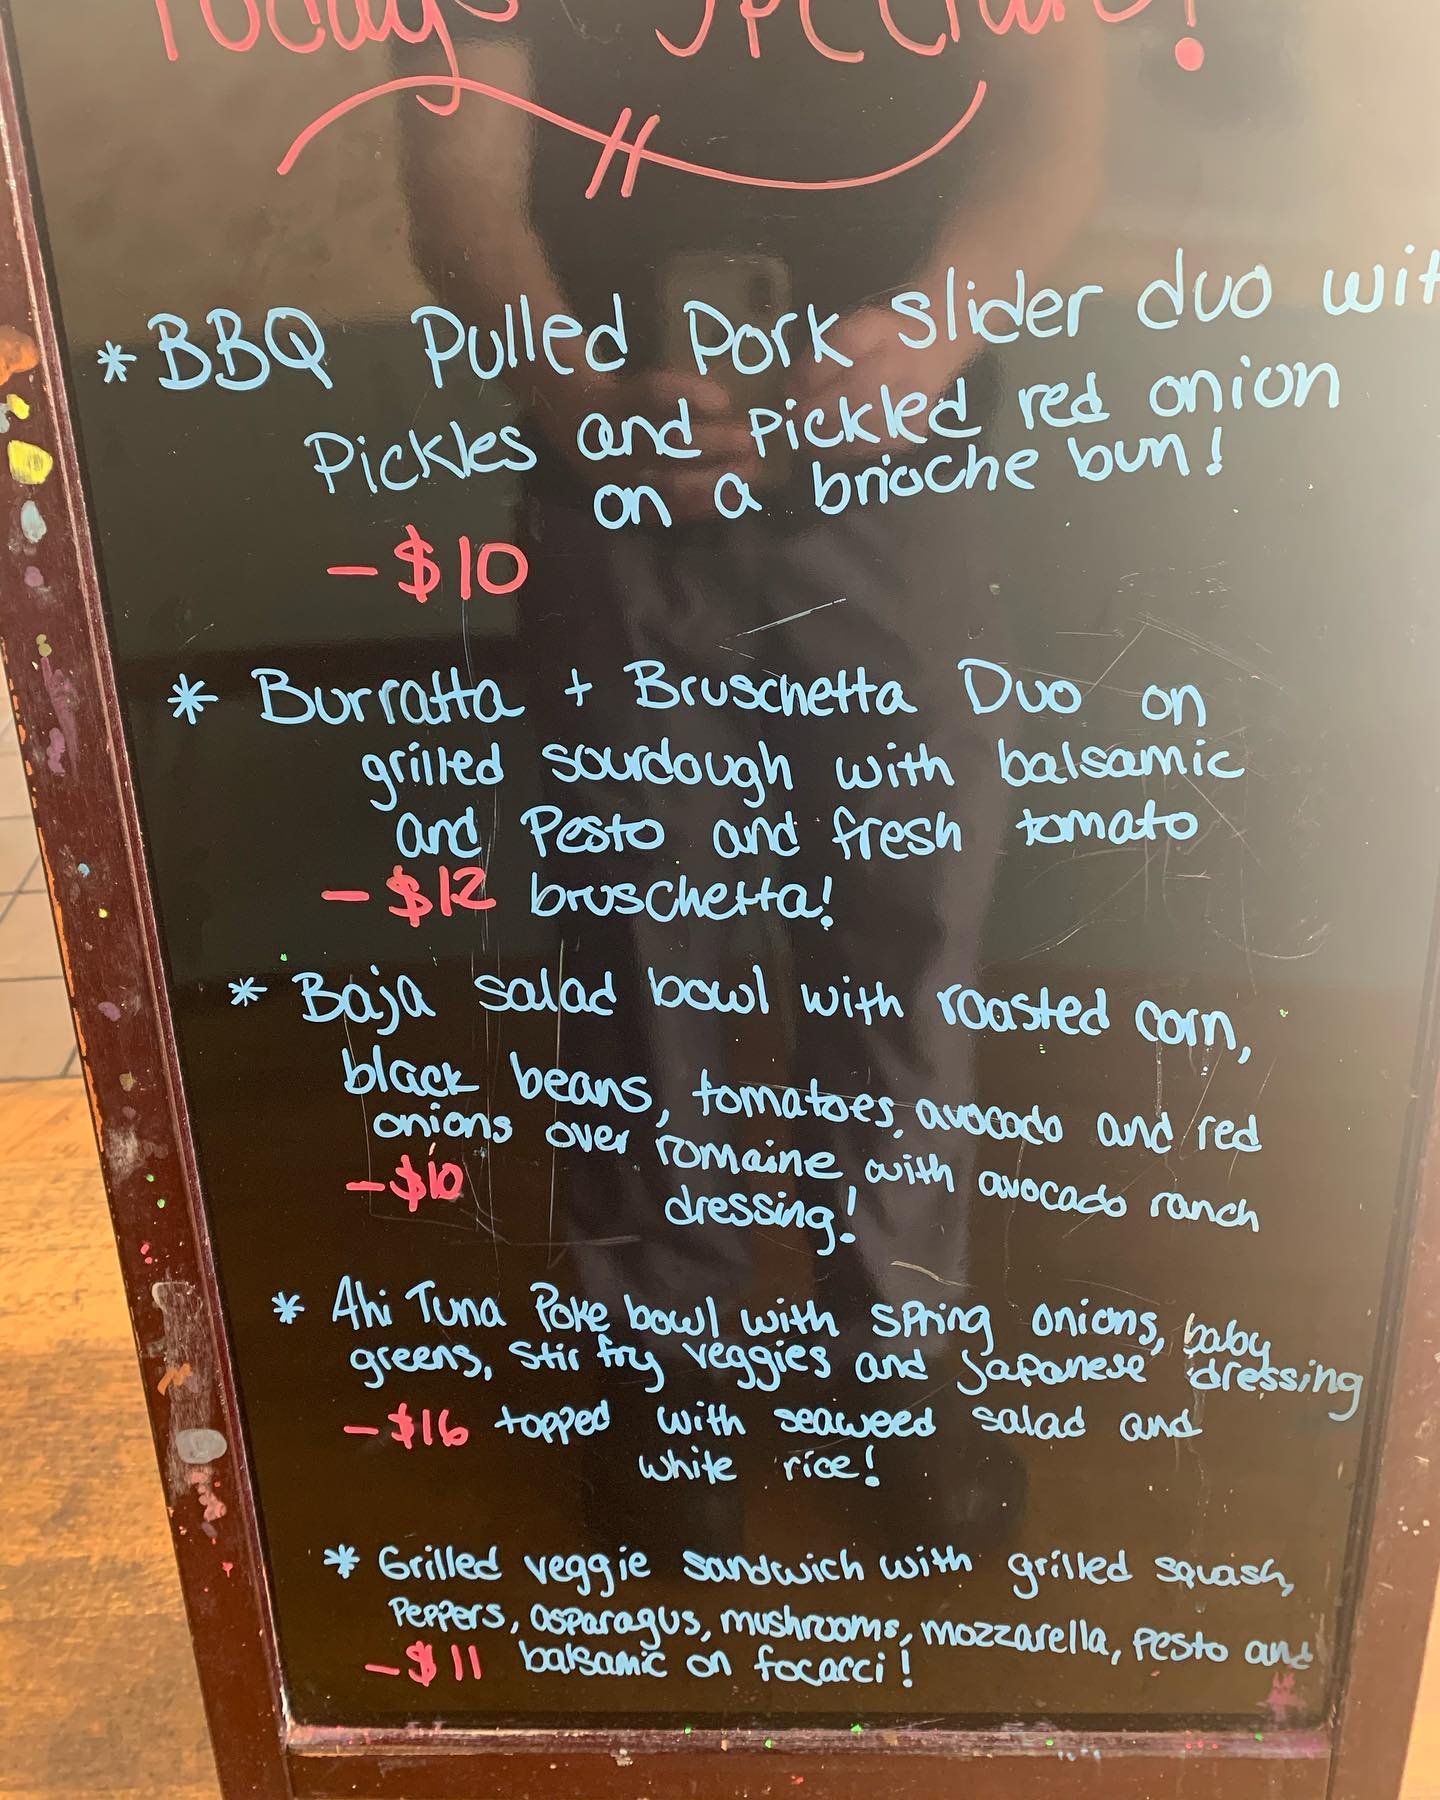 Today's Specials!
*BBQ Pulled Pork slider duo wit
Pickles and pickled red onion
on a brioche bun!
- $10
* Burratta + Bruschetta Duo on
grilled sourdough with balsamic
and Pesto and fresh tomato
- $12 bruschetta!
* Baja salad bowl with roasted corn,
black beans, tomatoes, avocado and red
onions over romaine with avocado ranch
- $10 dressing!
* Ahi Tuna Poke bowl with spring onions, baby
greens, stir fry veggies and Japanese dressing
- $16 topped with seaweed salad and
white rice!
* Grilled veggie sandwich with grilled squash,
Peppers, asparagus, mushrooms, mozzarella, pesto and
- $11 balsamic on focacci!